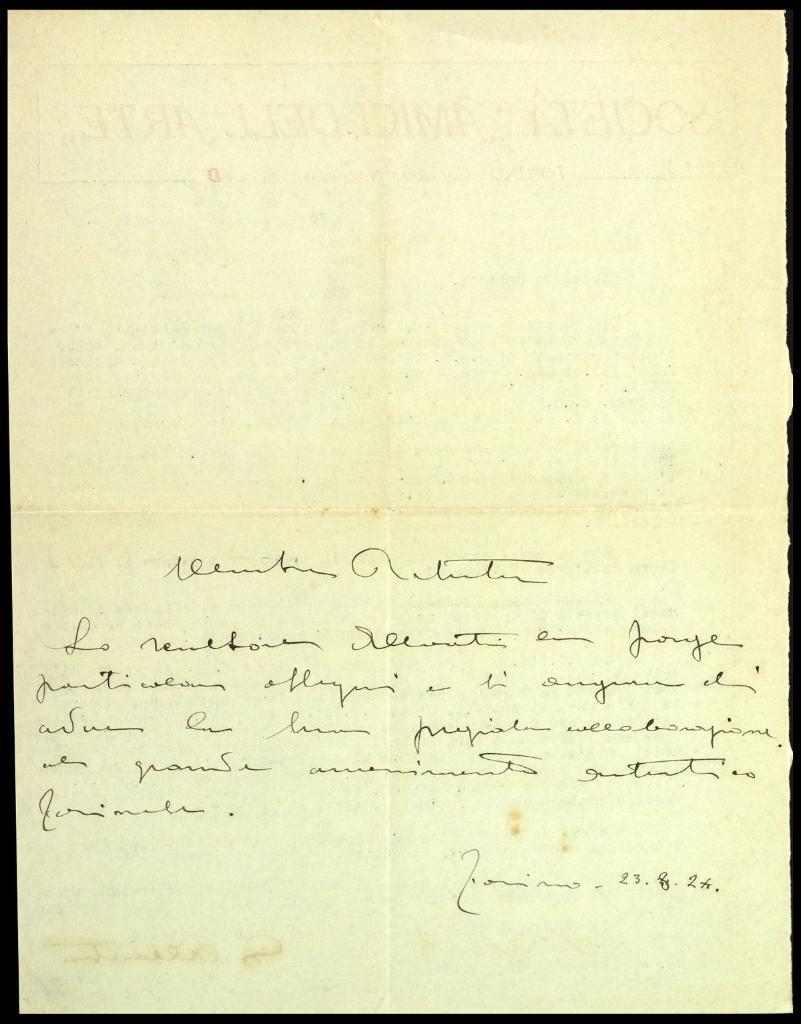 SOCIETÀ "AMICI DELL'ARTE"
TORINO
Illustre Artista
Lo scultore Alloati Le porge
particolari ossequi e si augura di
avere la Sua pregiata collaborazione
al grande avvenimento artistico
Torinese.
Torino. 23. 24.